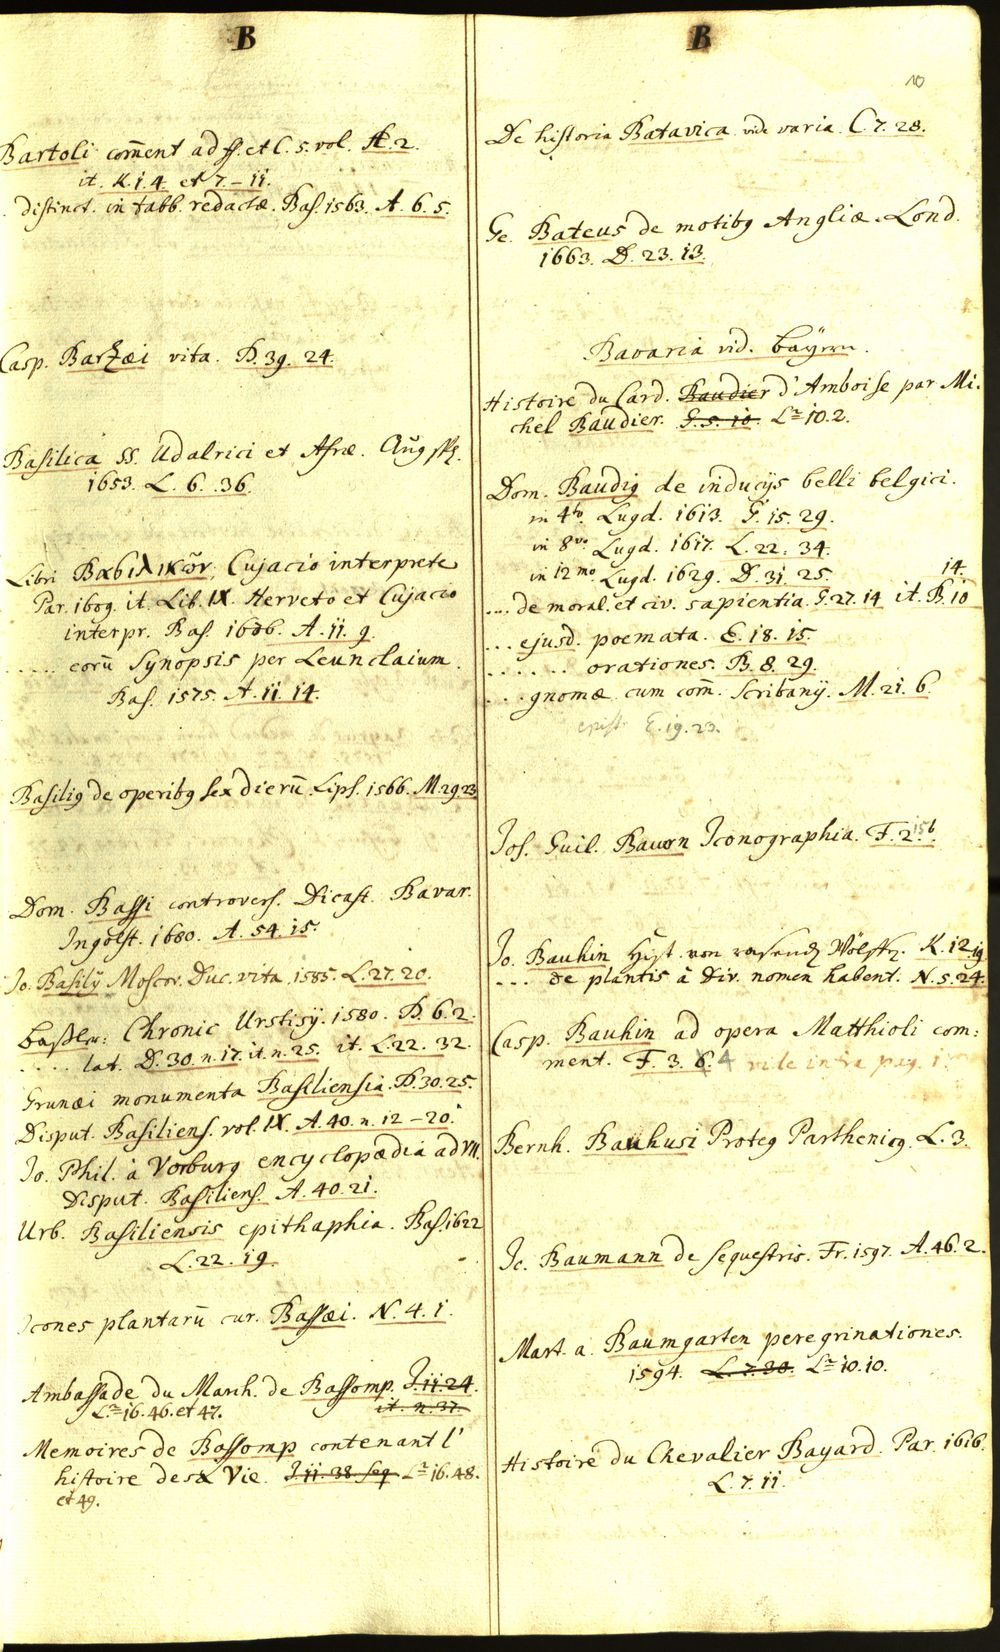 B
Bartoli com̄ent ad ff. et C. 5. vol. A. 2.
it. K. 1. 4. et 7 - 11.
distinct. in tabb. redactæ. Bas. 1563. A. 6. 5.
Casp. Barzæi vita. D. 39. 24.
Basilica SS. Udalrici et Afræ. Aug
1653. L. 6. 36.
Libri Βασιλικῶν, Cujacio interprete
Par. 1609. it. Lib. IX. Herveto et Cujacio
interpr. Bas. 1606. A. 11. 9.
..... eorū Synopsis per Leunclaium.
Bas. 1575. A. 11. 14.
Basiliq de operibq sex dierū. Lips. 1566. M. 29. 23
Dom. Bassi controvers. Dicast. Bavar.
Ingolst. 1680. A. 54. 15.
Jo. Basilÿ Moscov. Duc. vita. 1585. L. 27. 20.
Baßler: Chronic Urstisÿ. 1580. D. 6. 2.
.... lat. D. 30. n. 17. it. n. 25. it. L. 22. 32.
Grunæi monumenta Basiliensia. D. 30. 25.
Disput. Basiliens. vol. IX. A. 40. n. 12 - 20.
Jo. Phil. à Vorburg encyclopædia ad VII.
Disput. Basiliens. A. 40. 21.
Urb. Basiliensis epithaphia. Bas. 1622
L. 22. 19.
Icones plantarū cur. Bassæi. N. 4. 1.
Ambassade du March. de Bassomp. J. 11. 24.
L.ª 16. 46. et 47. it. n. 37.
Memoires de Bassomp contenant l'
histoire de sa Vie. J. 11. 38. seq L.ª 16. 48.
et 49.
B
10
De historia Batavica vide varia. C. 7. 28.
Ge. Bateus de motibq Angliæ. Lond.
1663. D. 23. 13.
Bavaria vid. Bayern.
Histoire du Card. Baudier d'Amboise par Mi-
chel Baudier. G. 5. 10. L.ª 10. 2.
Dom. Baudiq de inducijs belli belgici.
in 4to. Lugd. 1613. G. 15. 29.
in 8vo. Lugd. 1617. L. 22. 34.
in 12mo. Lugd. 1629. D. 31. 25. 14.
... de moral. et civ. sapientia. G. 27. 14 it. B. 10
... ejusd. poemata. E. 18. 15.
...... orationes. B. 8. 29.
... gnomæ cum com̄. Scribanÿ. M. 21. 6.
epist. E. 19. 23.
Jos. Guil. Bauern Iconographia. F. 2. 15b.
Jo. Bauhin Hist. von K. 12 19
... de plantis à Div. nomen habent. N. 5. 24.
Casp. Bauhin ad opera Matthioli com:
ment. F. 3. 6. 4 vide infra pag. 1.
Bernh. Bauhusi Proteq Partheniq. L. 3.
Jc. Baumann de sequestris. Fr. 1597. A. 46. 2.
Mart. a. Baumgarten peregrinationes.
1594. L. 7. 30. L.ª 10. 10.
Histoire du Chevalier Bayard. Par. 1616.
L. 7. 11.